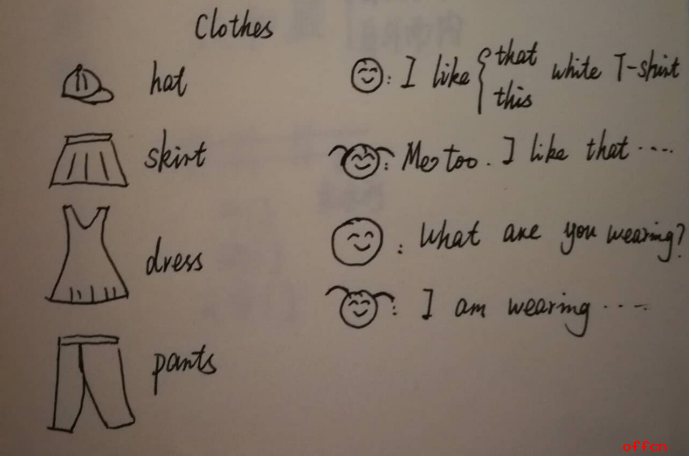 Clothes
hat
skirt
dress
pants
: I like { that white T-shirt
this
: Me too. I like that ····
: What are you wearing?
: I am wearing ····
offcn